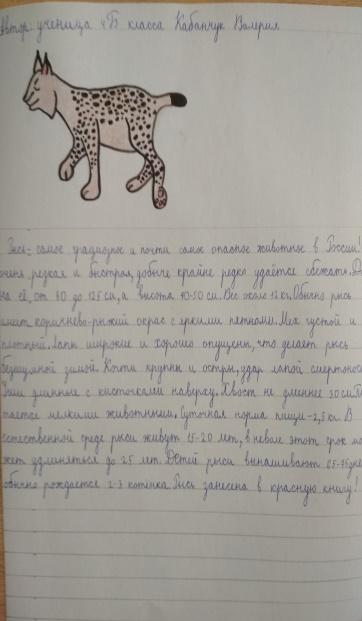 Автор: ученица 4"Б" класса Кабанчук Валерия
Рысь- самое грациозное и почти самое опасное животное в России!
очень резкая и быстрая, добыче крайне редко удаётся сбежать. Д
на её, от 80 до 125 см, а высота 40-50 см. Вес около 12 кг. Обычно рысь
имеет коричнево-рыжий окрас с яркими пятнами. Мех густой и
плотный. Лапы широкие и хорошо опущены, что делает рысь
бесшумной зимой. Когти крупны и остры, удар лапой смертонос
Уши длинные с кисточками наверху. Хвост не длиннее 30 см. Пи
тается мелкими животными. Суточная норма пищи-2,5 кг. В
естественной среде рыси живут 15-20 лет, в неволе этот срок мо
жет удлиняться до 25 лет. Детей рыси вынашивают 65-75 дне
обычно рождается 2-3 котёнка. Рысь занесена в красную книгу!